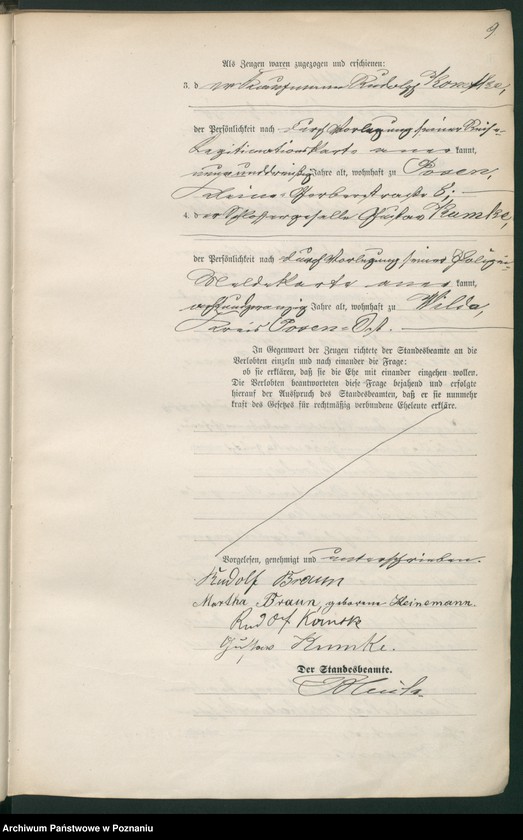 9
Als Zeugen waren zugezogen und erschienen:
3. der Kaufmann Rudolf
der Persönlichkeit nach durch Vorlegung seiner
Legitimationskarte aner kannt,
neununddreißig Jahre alt, wohnhaft zu Posen,
kleine Gerberstraße 6;
4. der Schlossergeselle Gustav Kumke,
der Persönlichkeit nach durch Vorlegung seiner Polizei-
Meldekarte aner kannt,
achtundzwanzig Jahre alt, wohnhaft zu Wilda,
Kreis Posen-Ost.
In Gegenwart der Zeugen richtete der Standesbeamte an die
Verlobten einzeln und nach einander die Frage:
ob sie erklären, daß sie die Ehe mit einander eingehen wollen.
Die Verlobten beantworteten diese Frage bejahend und erfolgte
hierauf der Ausspruch des Standesbeamten, daß er sie nunmehr
kraft des Gesetzes für rechtmäßig verbundene Eheleute erkläre.
Vorgelesen, genehmigt und unterschrieben.
Rudolf Braun
Martha Braun, geborene Heinemann.
Rudolf
Gustav Kumke.
Der Standesbeamte.
Archiwum Państwowe w Poznaniu